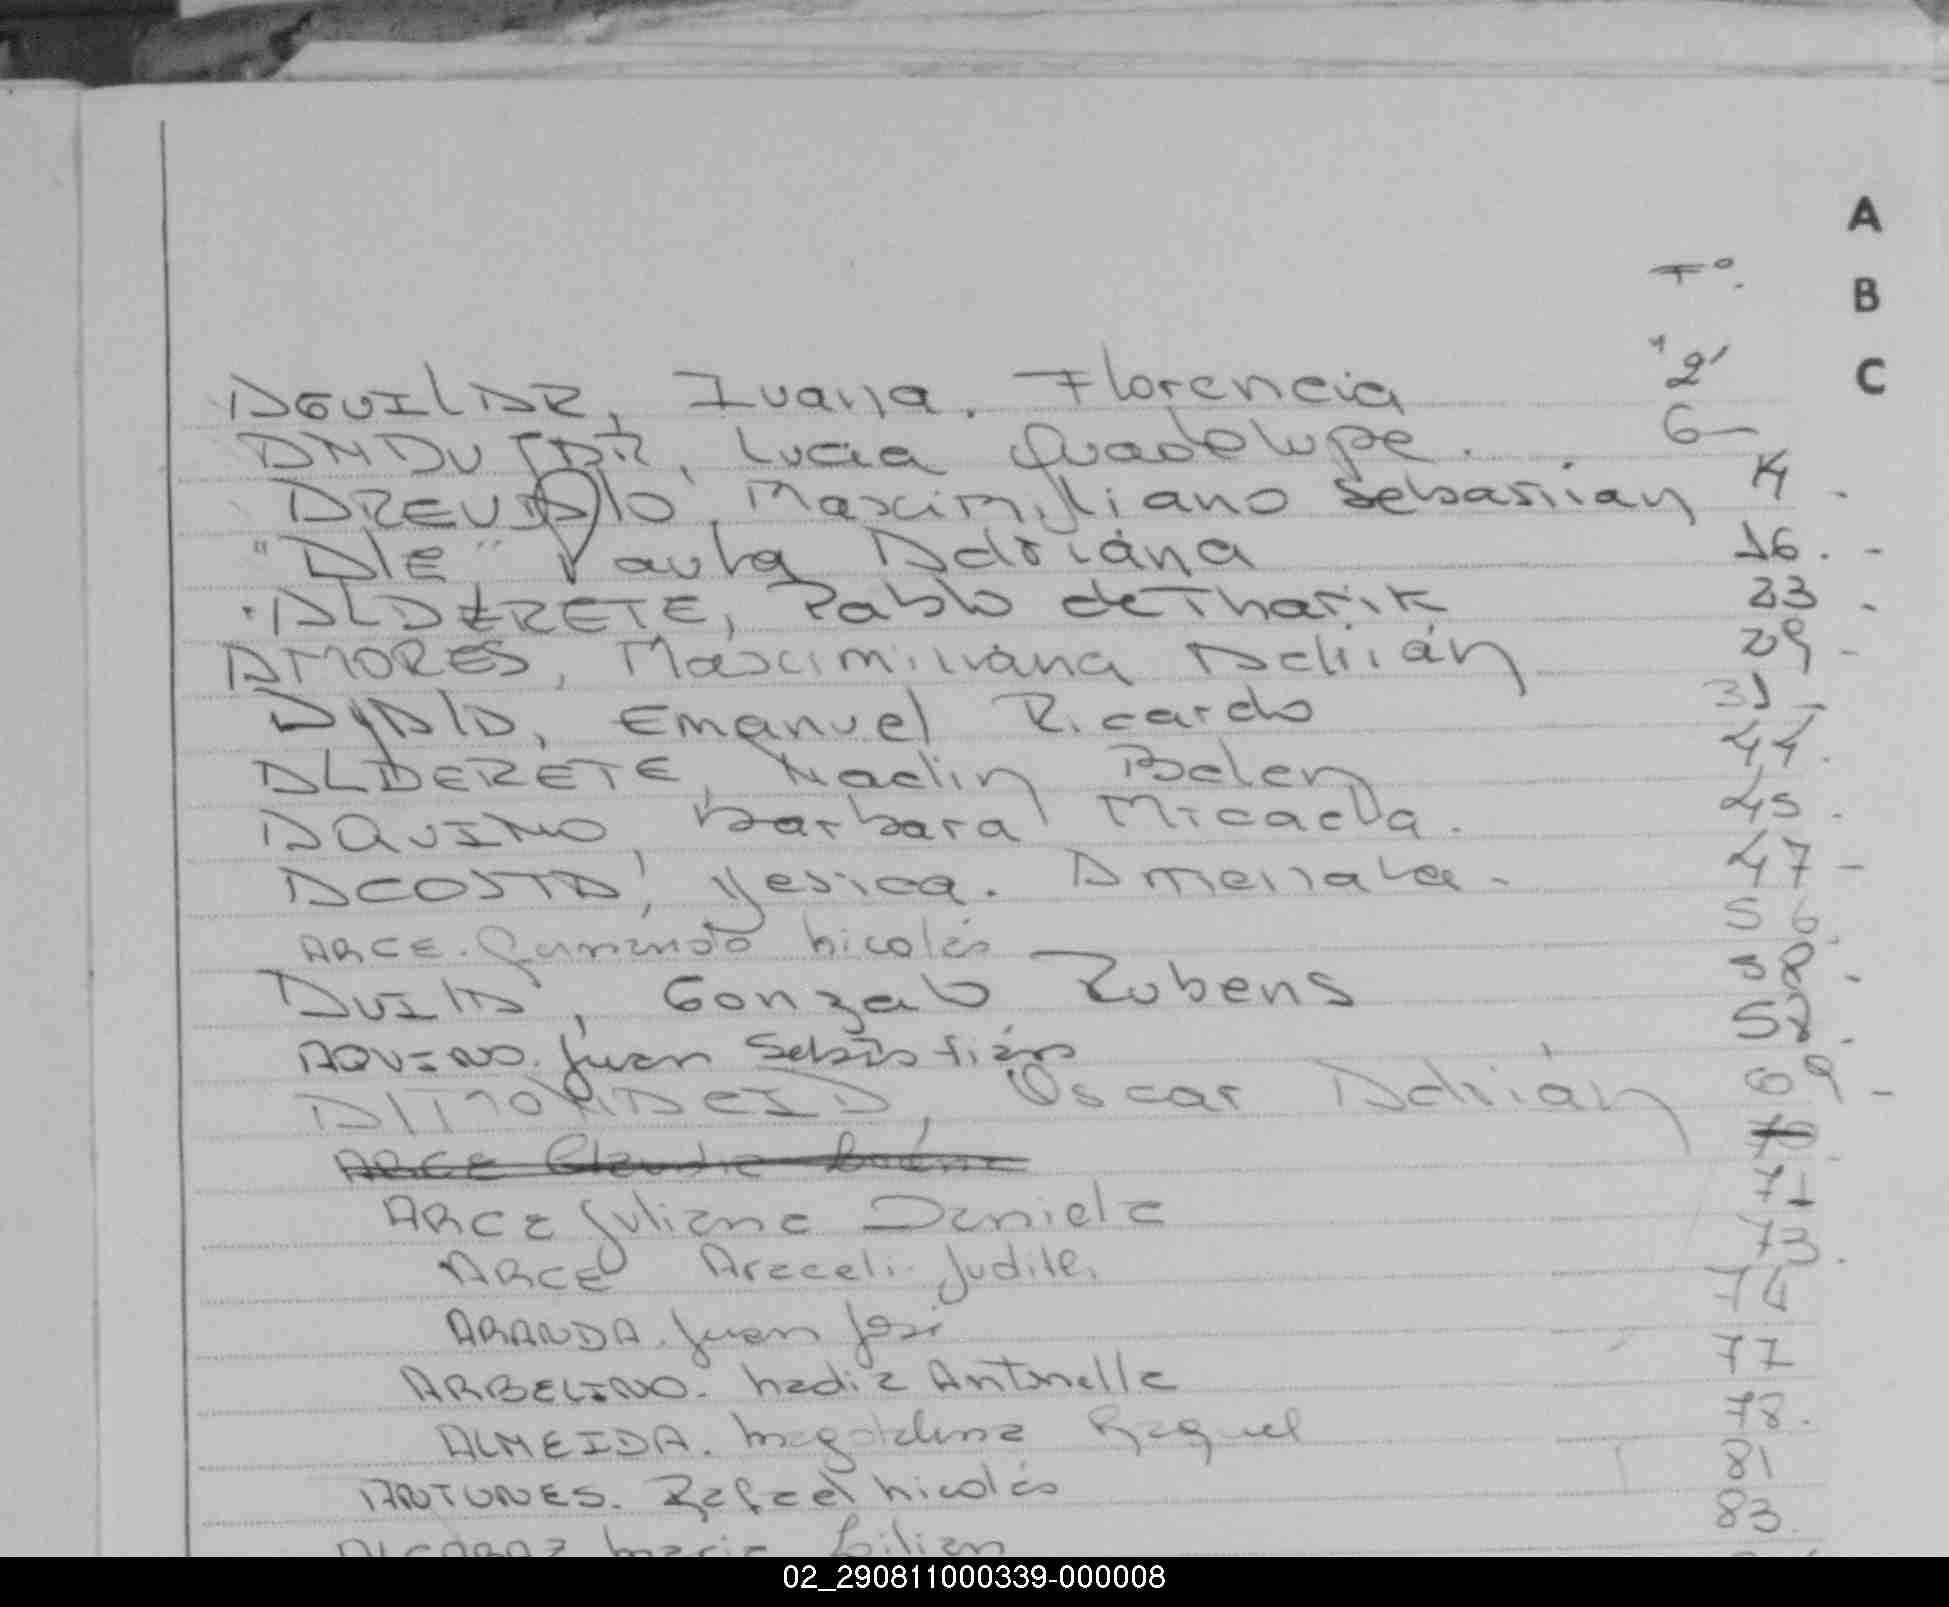 A
Fº.
B
C
AGUILAR, Ivana. Florencia 2
Lucia Guadelupe. 6
AREVALO, Maximiliano Sebastian 14
"ALE" Paula Adriana 16.-
ALDERETE, Pablo de Tharik 23.
AMORES, Maximiliana Adrián 29-
AYALA, Emanuel Ricardo 31-
ALDERETE, Nadin Belen 44.
AQUINO, Barbara Micaela. 45.
ACOSTA, Yesica. 47-
ARCE. nicolás 56.
AVILA, Gonzalo Rubens 58-
AQUINO. Juan Sebastián 58.
Oscar Adrián 69-
ARCE Claudia 70
ARCE Juliana Daniela 71
ARCE Araceli Judith. 73.
ARANDA. Juan José 74
ARBELINO. nadia Antonella 77
ALMEIDA. magdalena Raquel 78.
ANTUNES. Rafael nicolás 81
ALCARAZ maria Lilian 83.
02_290811000339-000008